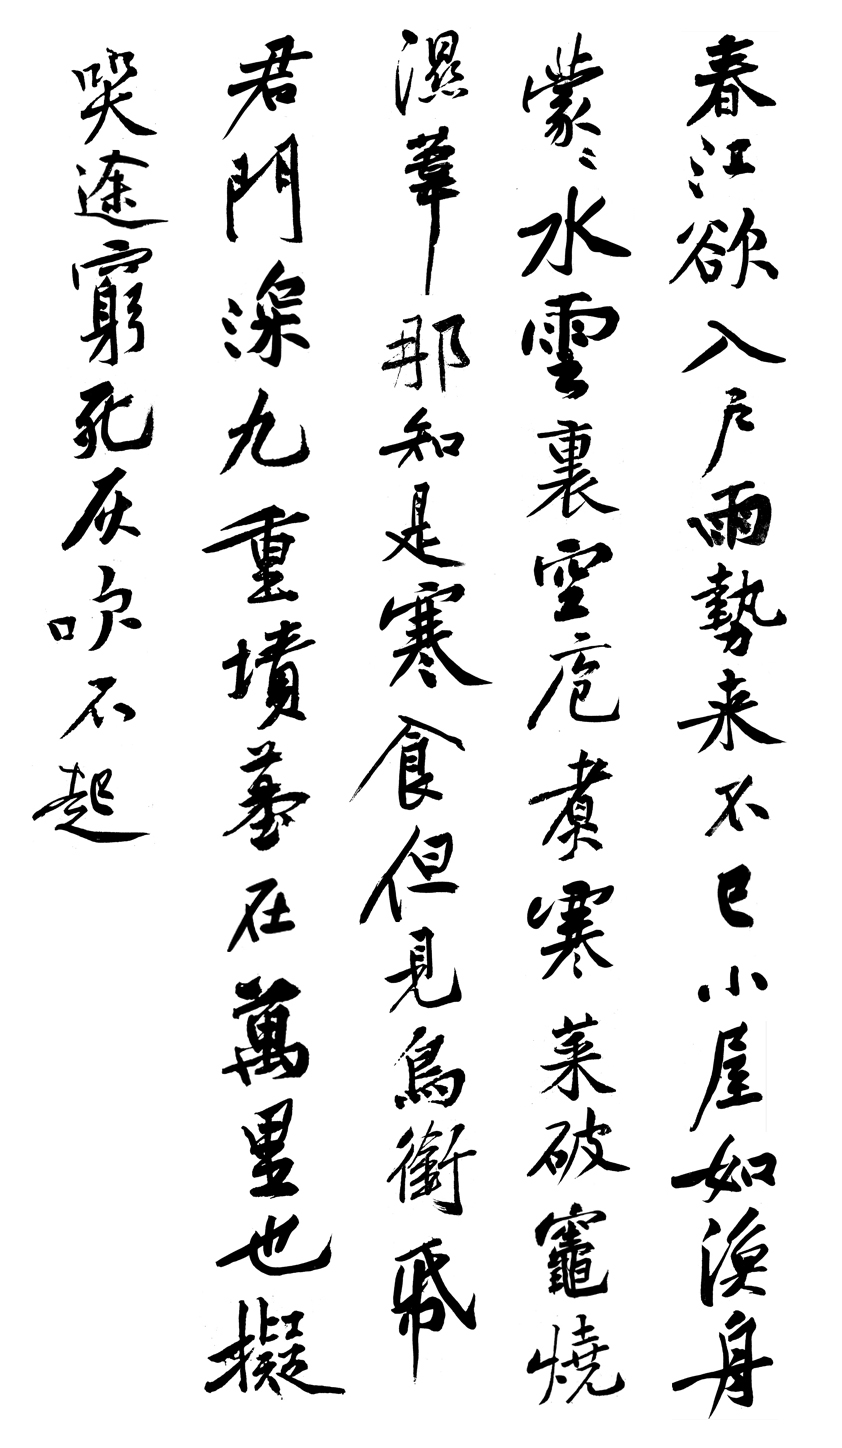 春江欲入戶雨勢来不已小屋如漁舟
蒙〻水雲裏空庖煮寒菜破竈燒
濕葦那知是寒食但見烏銜帋
君門深九重墳墓在萬里也擬
哭途窮死灰吹不起